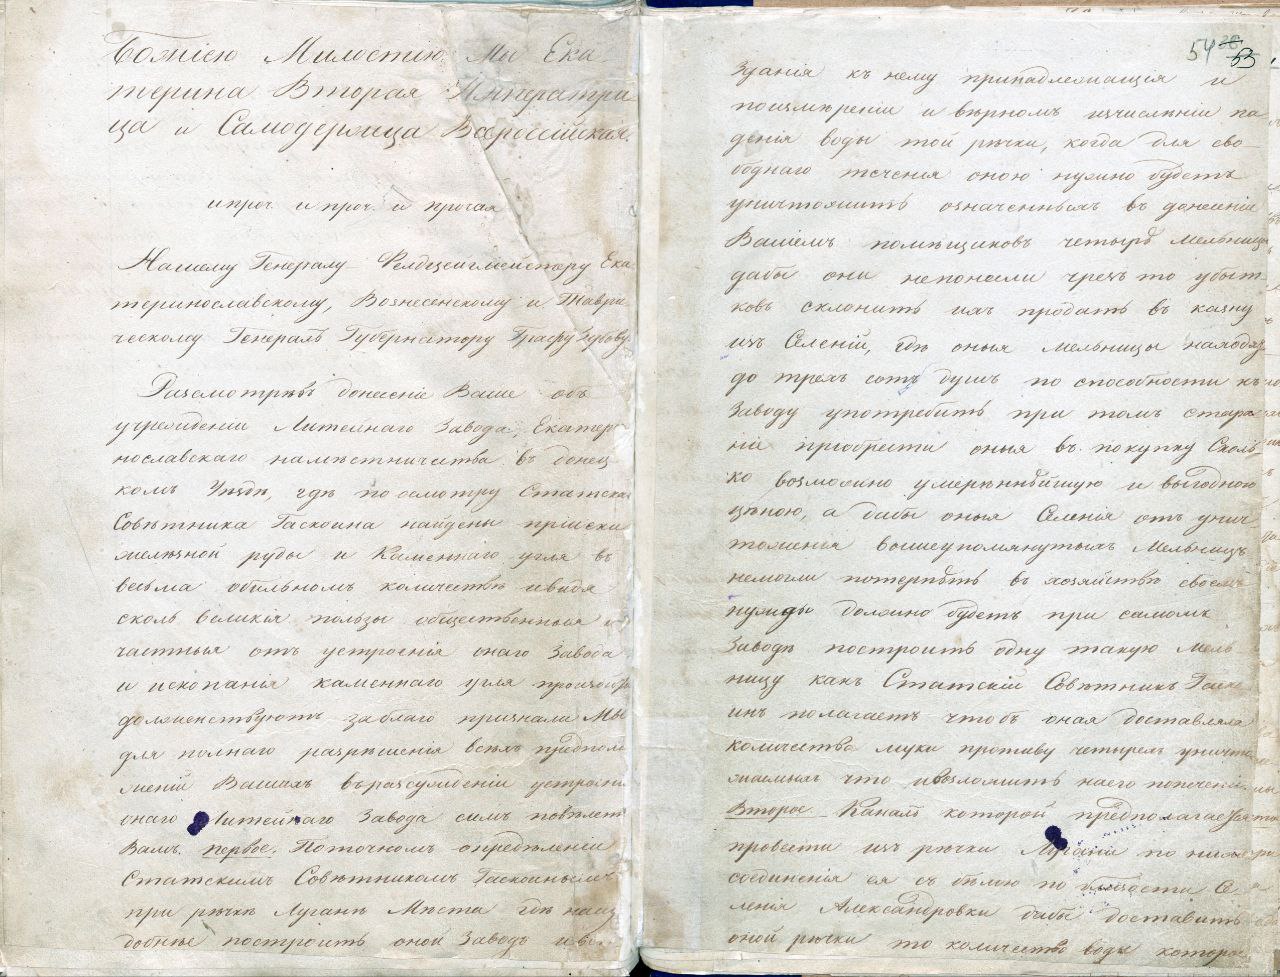 Божіею Милостію Мы Ека-
терина Вторая Императри
ца и Самодержица Всероссійская.
и проч. и проч. и прочая
Нашему Генералу Фелдцеигмейстеру Ека
теринославскому, Вознесенскому и Таври
ческому Генералъ Губернатору Графу Зубову
Разсмотревъ донесеніе Ваше объ
учрежденіи Литейнаго Завода, Екатери
нославскаго наместничества въ донец
комъ Уездѣ, где по осмотру Статска
Советника Гаскоина найдены пріиски
желѣзной руды и Каменнаго угля въ
весьма обильномъ количествѣ и видя
сколь великія пользы общественныя и
частныя отъ устроенія онаго Завода
и ископанія каменнаго угля произойть
долженствуютъ заблаго признали Мы
для полнаго разрешенія всѣхъ предпол
женій Вашихъ въ разсужденіи устроен
онаго Литейнаго Завода симъ повелеть
Вамъ. первое. Поточномъ определеніи
Статскимъ Советникомъ Гаскоиномъ
при речкѣ Лугане Места где наиу
добнее построить оной Заводъ и в
54 53
Зданія къ нему принадлежащія и
поизмереніи и верномъ изчисленіи па
денія воды той речки, когда для сво-
боднаго теченія оною нужно будетъ
уничтожить означенныхъ въ донесеніи
Вашемъ помещиковъ четыре Мельницы
дабы они непонесли чрезъ то убыт
ковъ склонить ихъ продать въ казну
изъ Селеній, где оныя мельницы находя
до трехъ сотъ душъ по способности къ
Заводу употребить при томъ стара
ніе пріобрести оныя въ покупку Сколь
ко возможно умереннейшую и выгодною
ценою, а дабы оныя Селенія отъ унич
тоженія вышеупомянутыхъ Мельницъ
немогли потерпеть въ хозяйстве своемъ
нужды должно будетъ при самомъ
Заводе построить одну такую Мель
ницу какъ Статскій Советникъ Гаско
инъ полагаетъ чтобъ оная доставляла
количество муки противу четырехъ уничто
жаемыхъ что и возложить наего попеченіе.
Второе Каналъ которой предполагаете
провести изъ речки Лугани по ниже
соединенія ея съ белою по близости Се
ленія Александровки дабы доставить
оной речки то количество воды которо